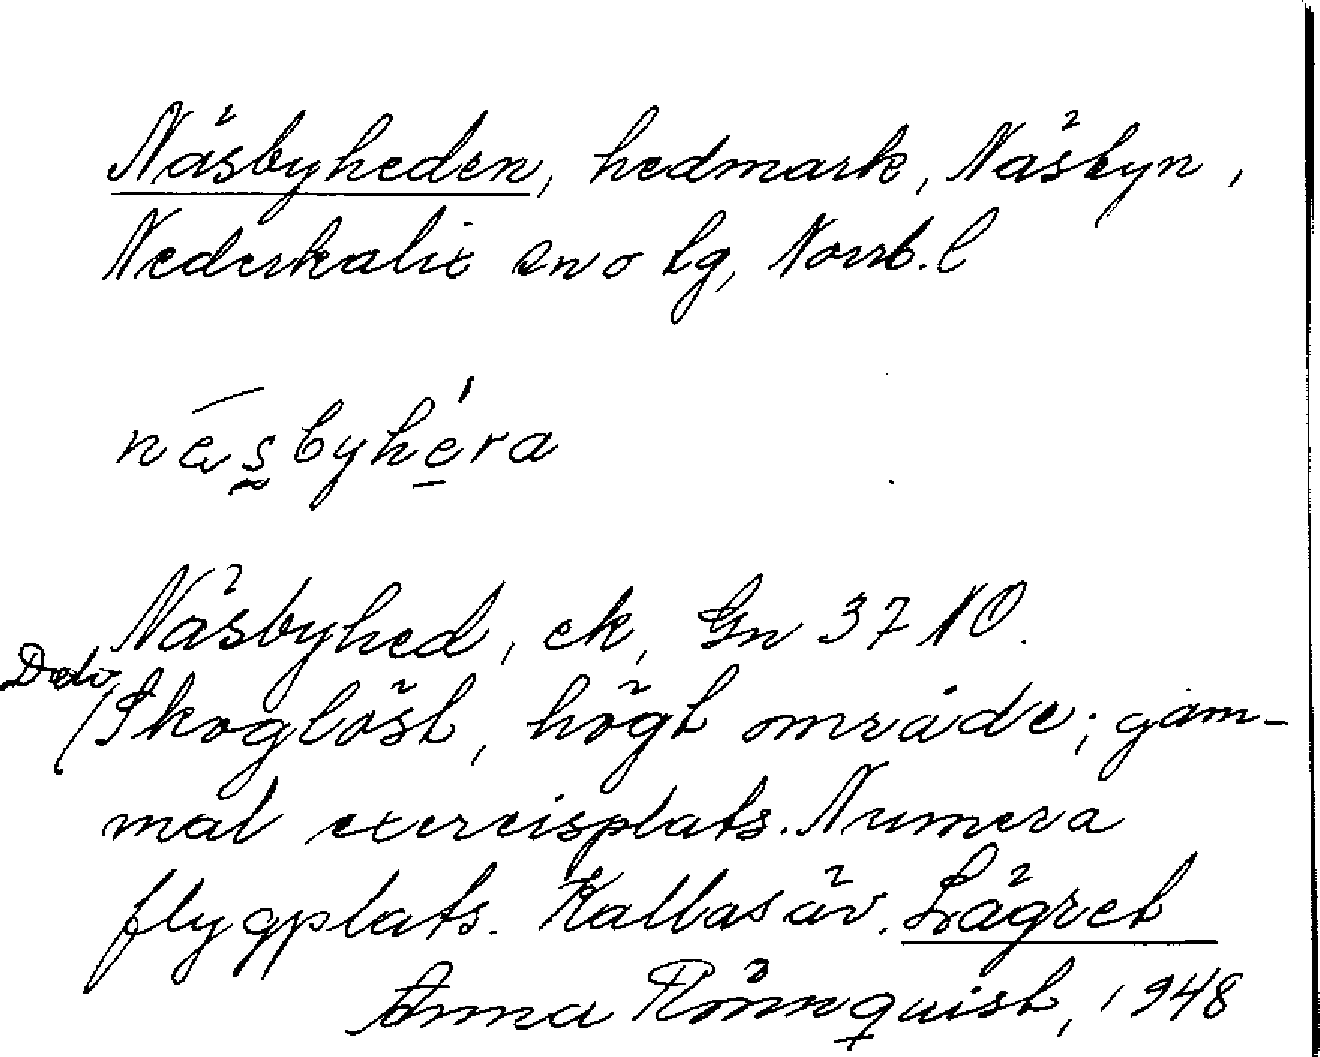 Näsbyheden, hedmark, Näsbyn,
Nederkalix sn o tg, Norrb. l
näsbyhéra
Näsbyhed, ek, Gn 37 NO.
Delv.
(Skoglöst, högt område; gam-
mal exercisplats. Numera
flygplats. Kallas äv. Lägret
Anna Rönnquist, 1948